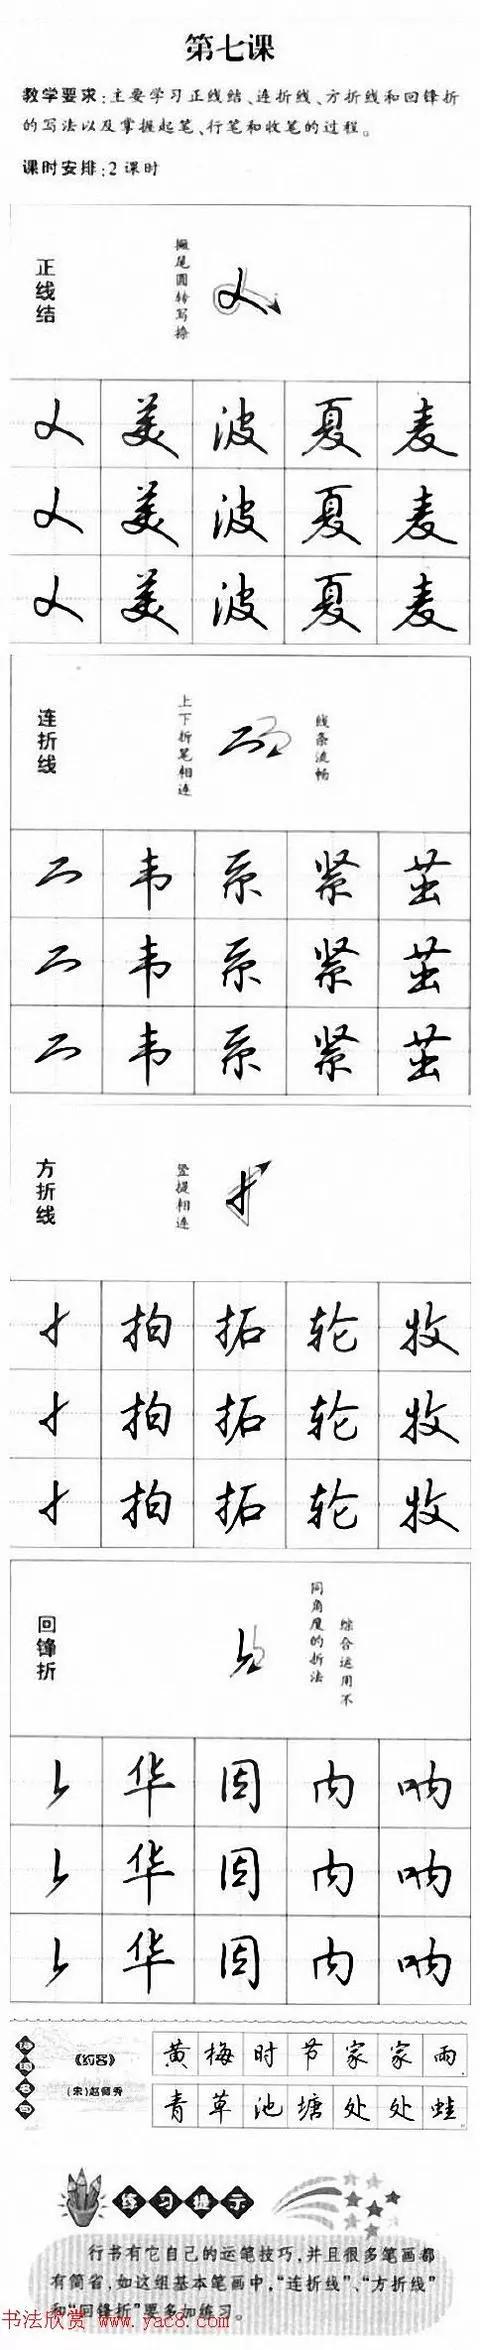 第七课
教学要求:主要学习正线结、连折线、方折线和回锋折
的写法以及掌握起笔、行笔和收笔的过程。
课时安排:2课时
正线结
撇尾圆转写捺
美 波 夏 麦
美 波 夏 麦
美 波 夏 麦
连折线
上下折笔相连
线条流畅
韦 系 紧 茧
韦 系 紧 茧
韦 系 紧 茧
方折线
竖提相连
拍 拓 轮 牧
拍 拓 轮 牧
拍 拓 轮 牧
回锋折
综合运用不
同角度的折法
华 因 内 呐
华 因 内 呐
华 因 内 呐
诗词名句
《约客》
(宋)赵师秀
黄梅时节家家雨
青草池塘处处蛙
练习提示
行书有它自己的运笔技巧,并且很多笔画都
有简省,如这组基本笔画中,“连折线”、“方折线”
和“回锋折”要多加练习。
书法欣赏 www.yac8.com